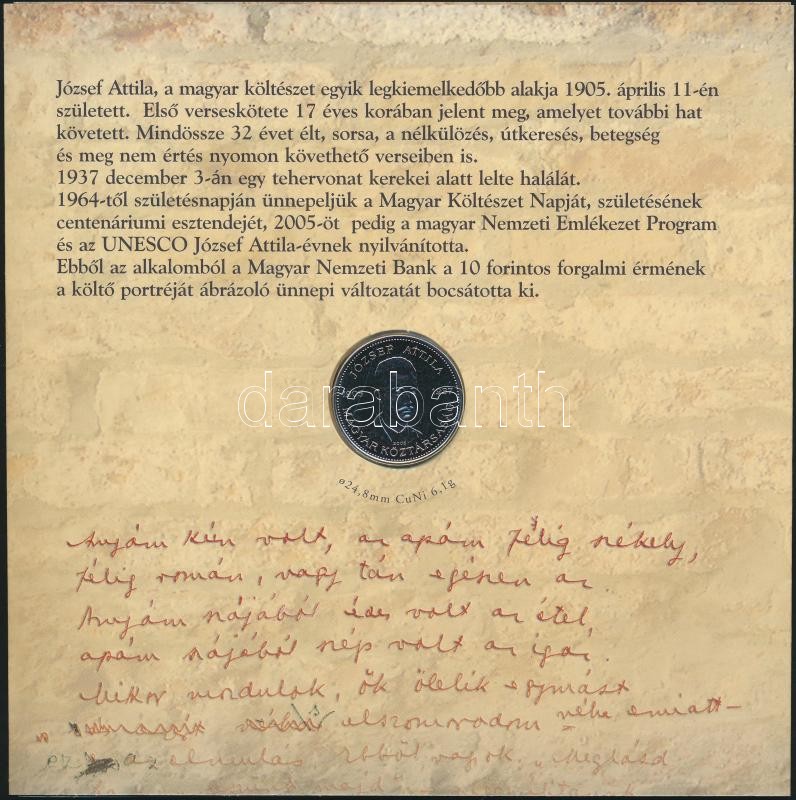 József Attila, a magyar költészet egyik legkiemelkedőbb alakja 1905. április 11-én
született. Első verseskötete 17 éves korában jelent meg, amelyet további hat
követett. Mindössze 32 évet élt, sorsa, a nélkülözés, útkeresés, betegség
és meg nem értés nyomon követhető verseiben is.
1937 december 3-án egy tehervonat kerekei alatt lelte halálát.
1964-től születésnapján ünnepeljük a Magyar Költészet Napját, születésének
centenáriumi esztendejét, 2005-öt pedig a magyar Nemzeti Emlékezet Program
és az UNESCO József Attila-évnek nyilvánította.
Ebből az alkalomból a Magyar Nemzeti Bank a 10 forintos forgalmi érmének
a költő portréját ábrázoló ünnepi változatát bocsátotta ki.
JÓZSEF ATTILA
darabanth
2005
MAGYAR KÖZTÁRSASÁG
ø24,8mm CuNi 6,1g
Anyám kún volt, az apám félig székely,
félig román, vagy tán egészen az
Anyám szájából édes volt az étel,
apám szájából szép volt az igaz.
Mikor mozdulok, ők ölelik egymást
elszomorodom néha emiatt—
ez az elmulás. Ebből vagyok. „Meglásd